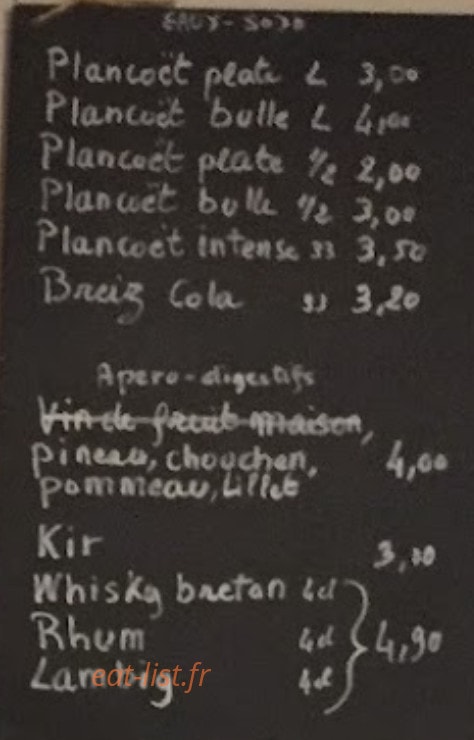 EAUX-SODA
Plancoët plate L 3,00
Plancoët bulle L 4,00
Plancoët plate 1/2 2,00
Plancoët bulle 1/2 3,00
Plancoët intense 33 3,50
Breiz Cola 33 3,20
Apero-digestifs
Vin de fruit maison,
pineau, chouchen, 4,00
pommeau, Lillet
Kir
Whisky breton 4cl
Rhum 4cl 4,90
Lambig 4cl
eat-list.fr